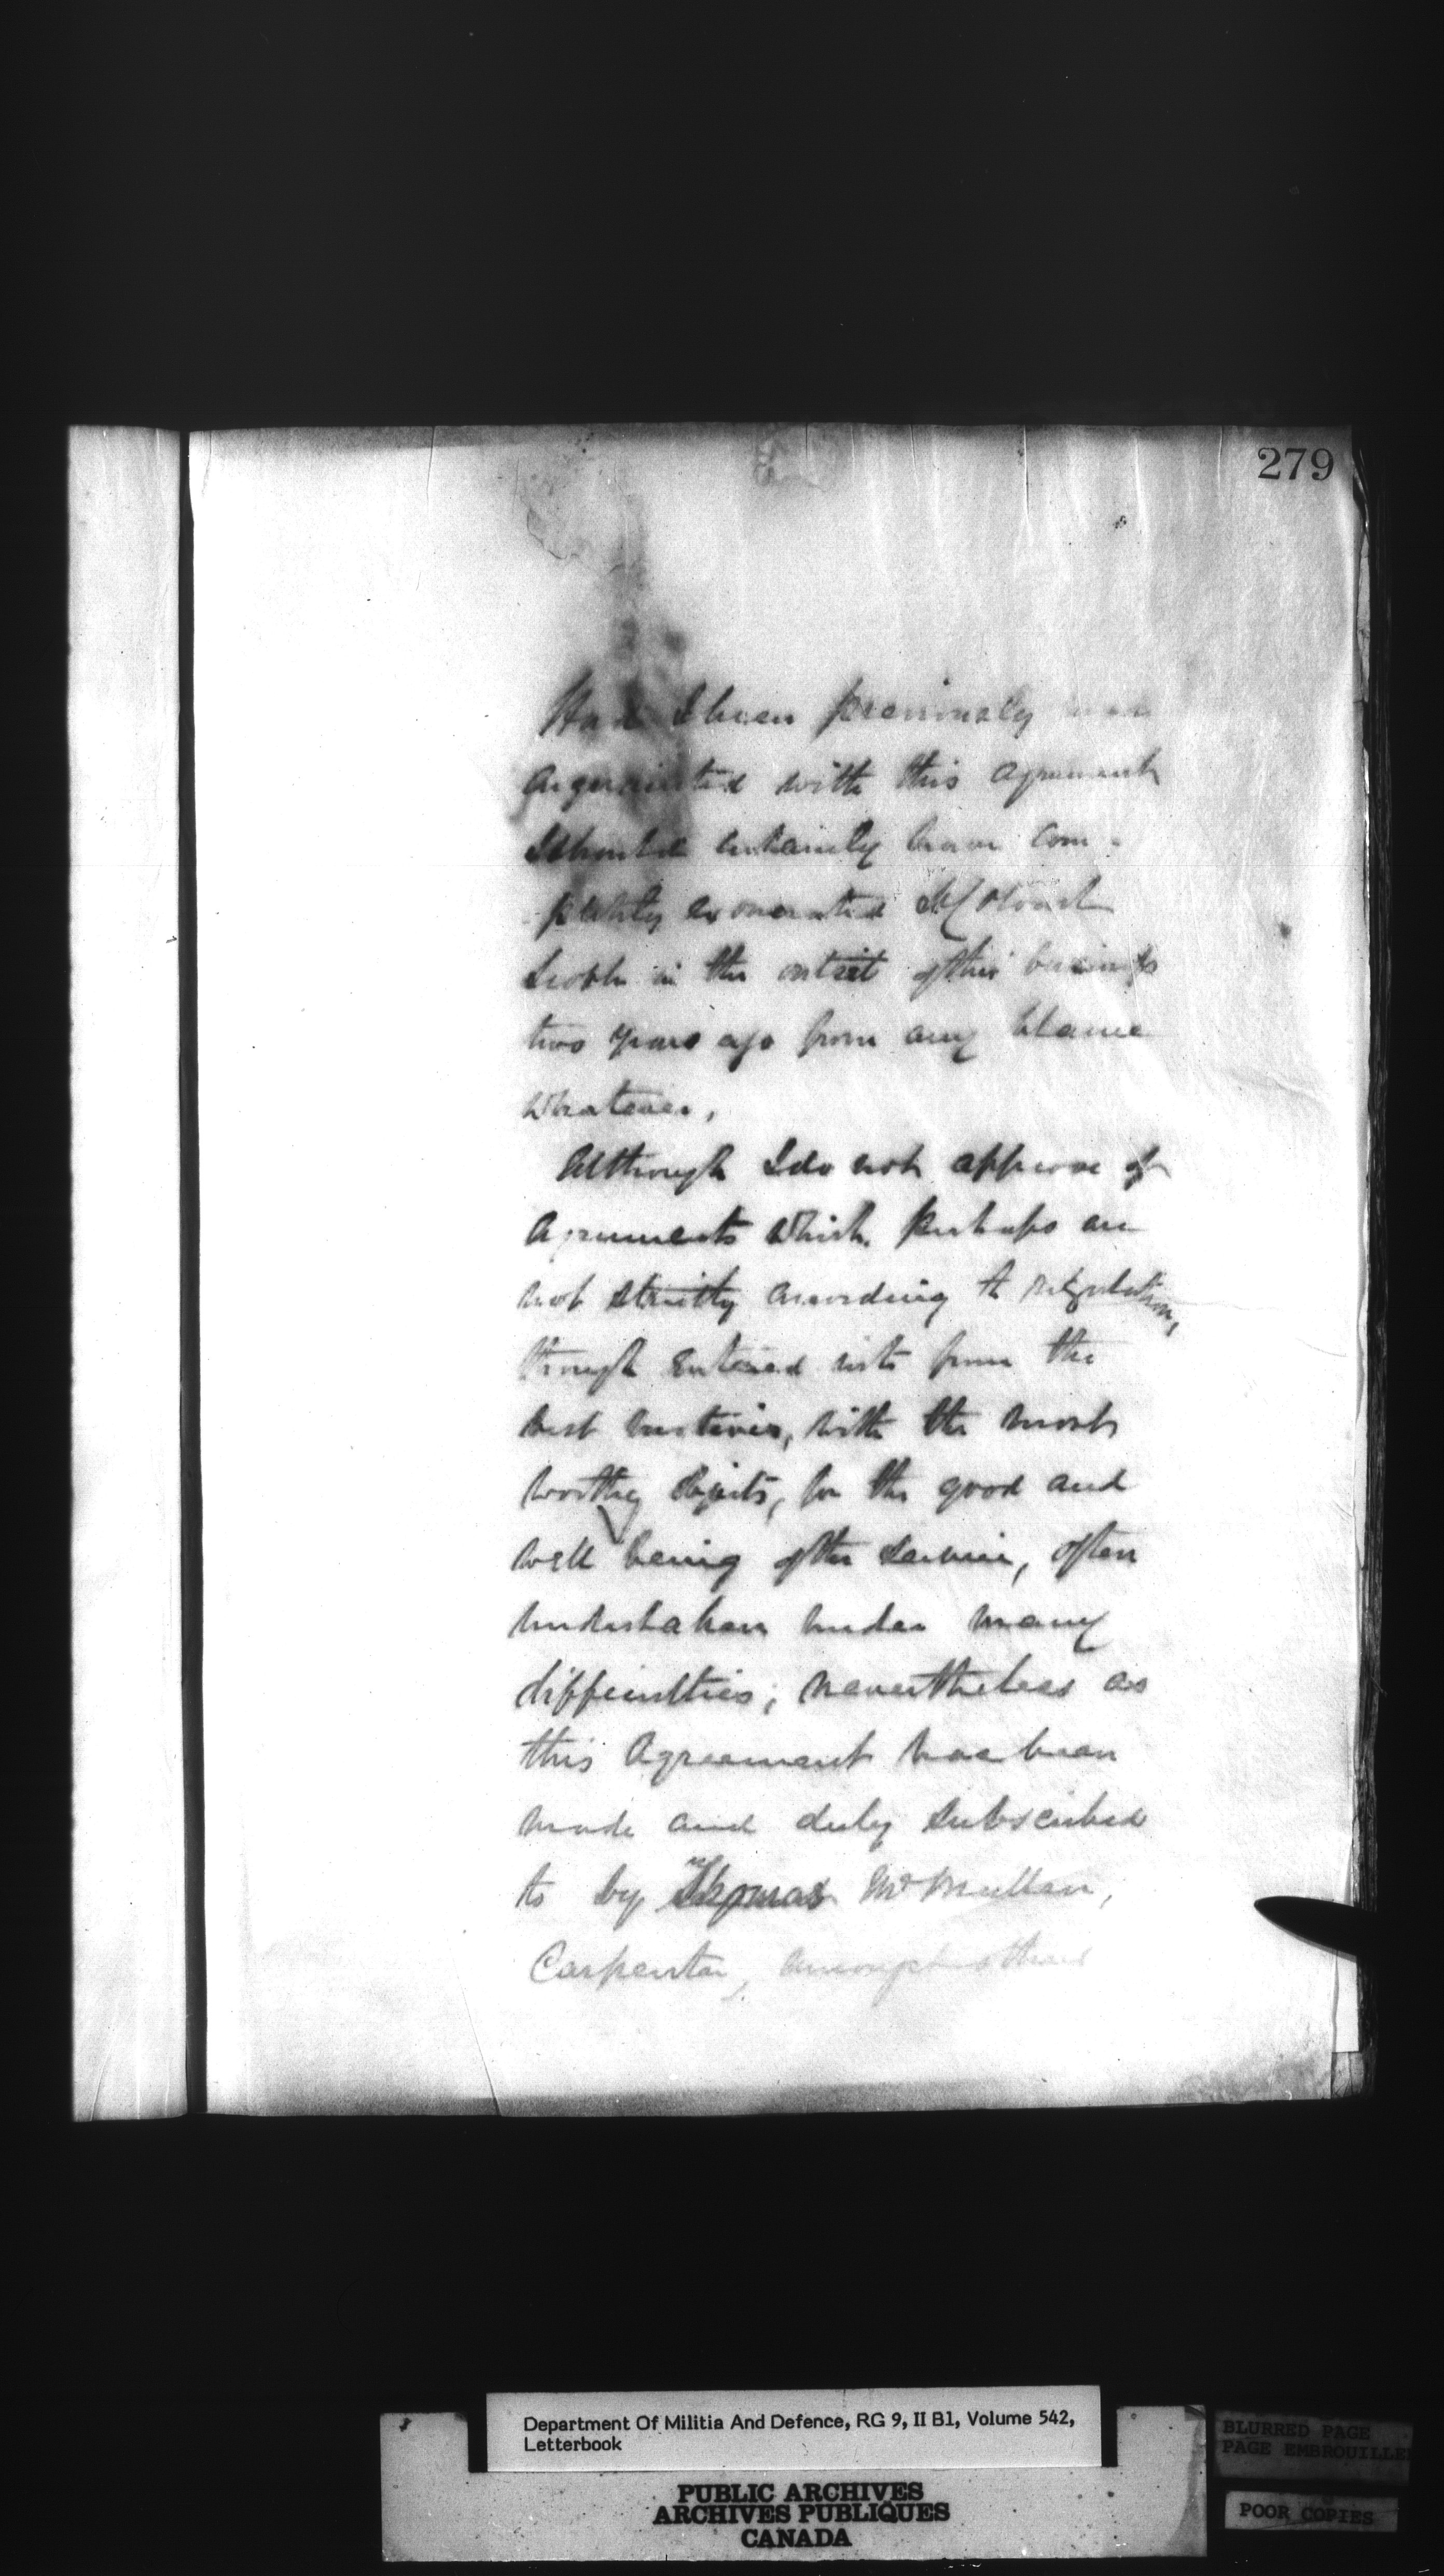 279
Had I been previously
acquainted with this agreement
I should certainly have com-
pletely exonerated Lt Colonel
in the outset of this business
two years ago from any blame
whatever,
Although I do not approve of
Agreements which perhaps are
not strictly according to regulation,
though entered into from the
best motives, with the most
worthy objects, for the good and
well being of the Service, often
undertaken under many
difficulties; nevertheless as
this Agreement has been
made and duly subscribed
to by Thomas McMullan,
Carpenter, amongst others
Department Of Militia And Defence, RG 9, II B1, Volume 542,
Letterbook
PUBLIC ARCHIVES
ARCHIVES PUBLIQUES
CANADA
BLURRED PAGE
PAGE EMBROUILLE
POOR COPIES